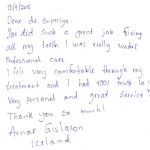 Dear dr. Supriya
You did such a great job fixing
all my teeth. I was really under
Professional care.
I felt very comfortable through my
treatment and I had 100% trust in
Very personal and great service
Thank you so much!
Arnar
Iceland